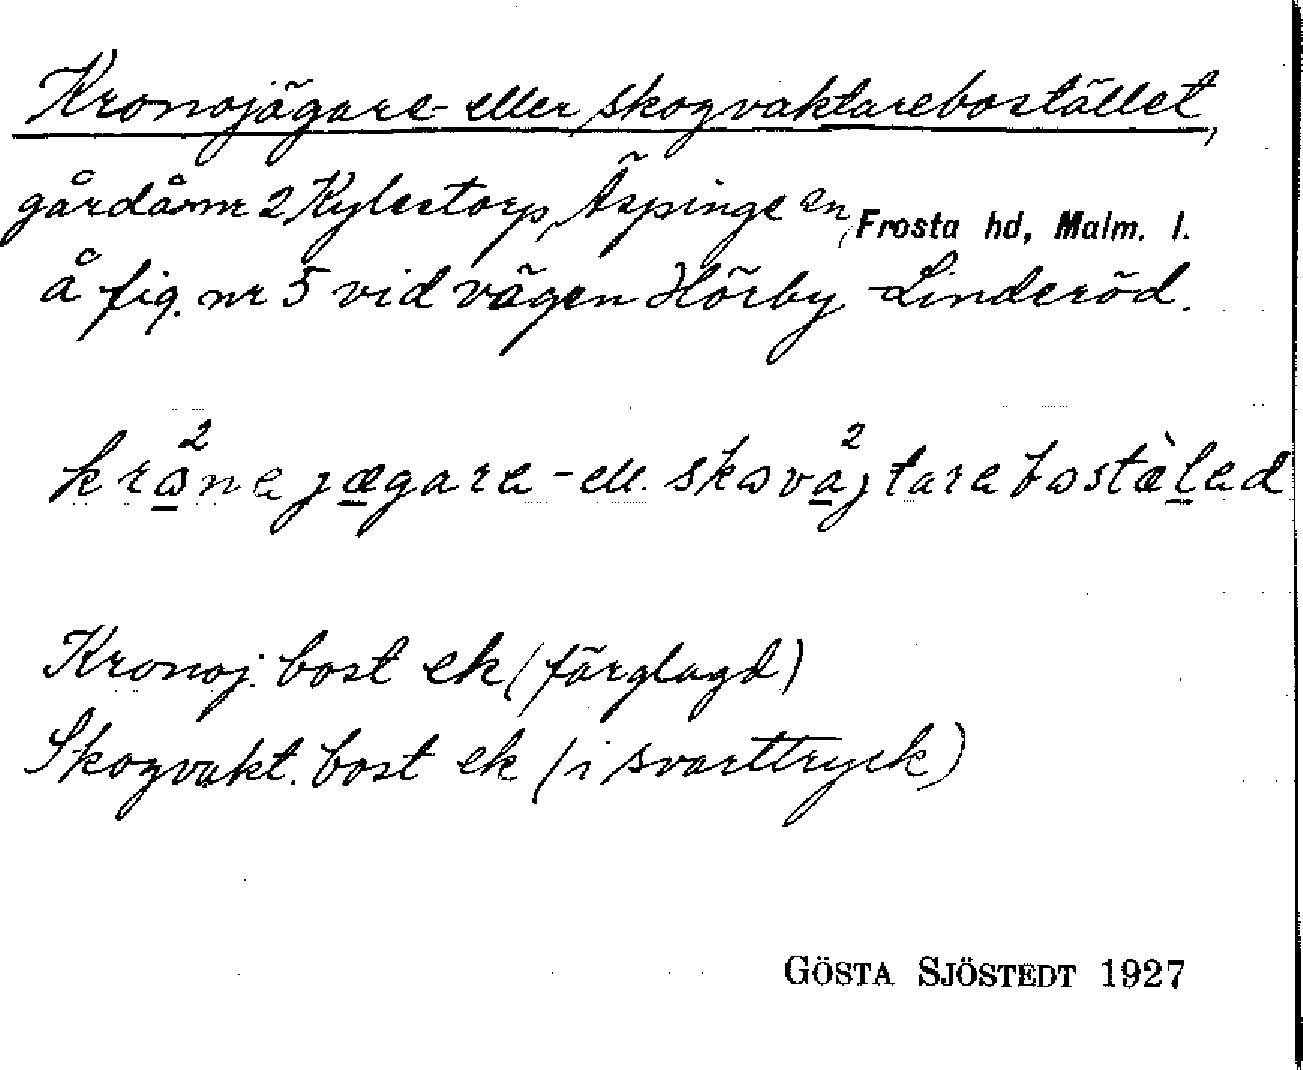 Kronojägare- eller skogvaktarebostället,
gård å nr 2 Kylestorp, Äspinge sn, Frosta hd, Malm. l.
å fig. nr 5 vid vägen Hörby - Linderöd.
-ell.
Kronoj. bost ek (färglagd)
Skogvakt. bost ek (i svarttryck)
GÖSTA SJÖSTEDT 1927